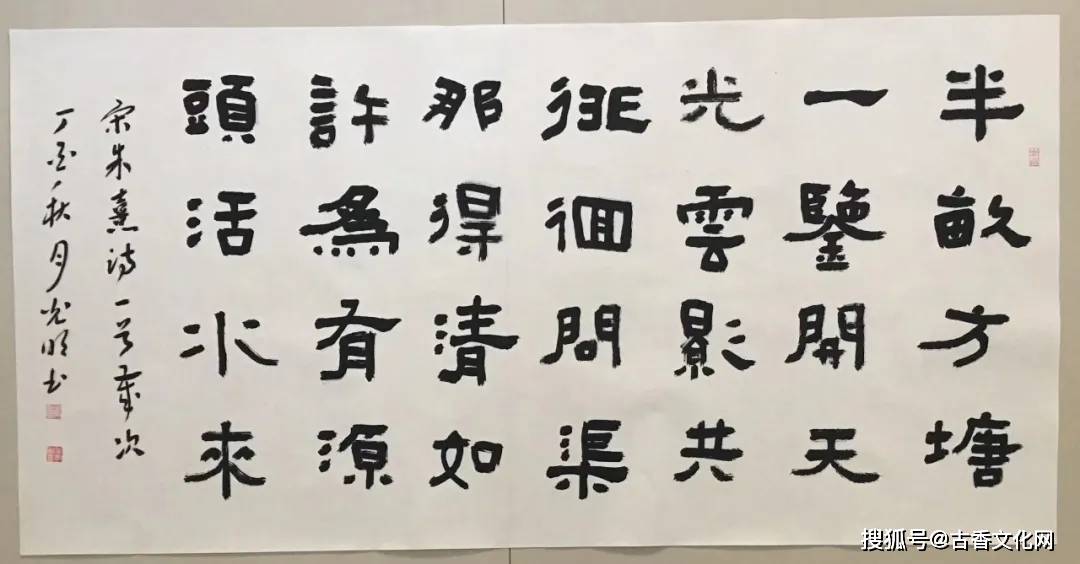 半畝方塘
一鑒開天
光雲影共
徘徊問渠
那得清如
許爲有源
頭活水來
宋朱熹詩一首歲次
丁酉秋月光明书
搜狐号@古香文化网